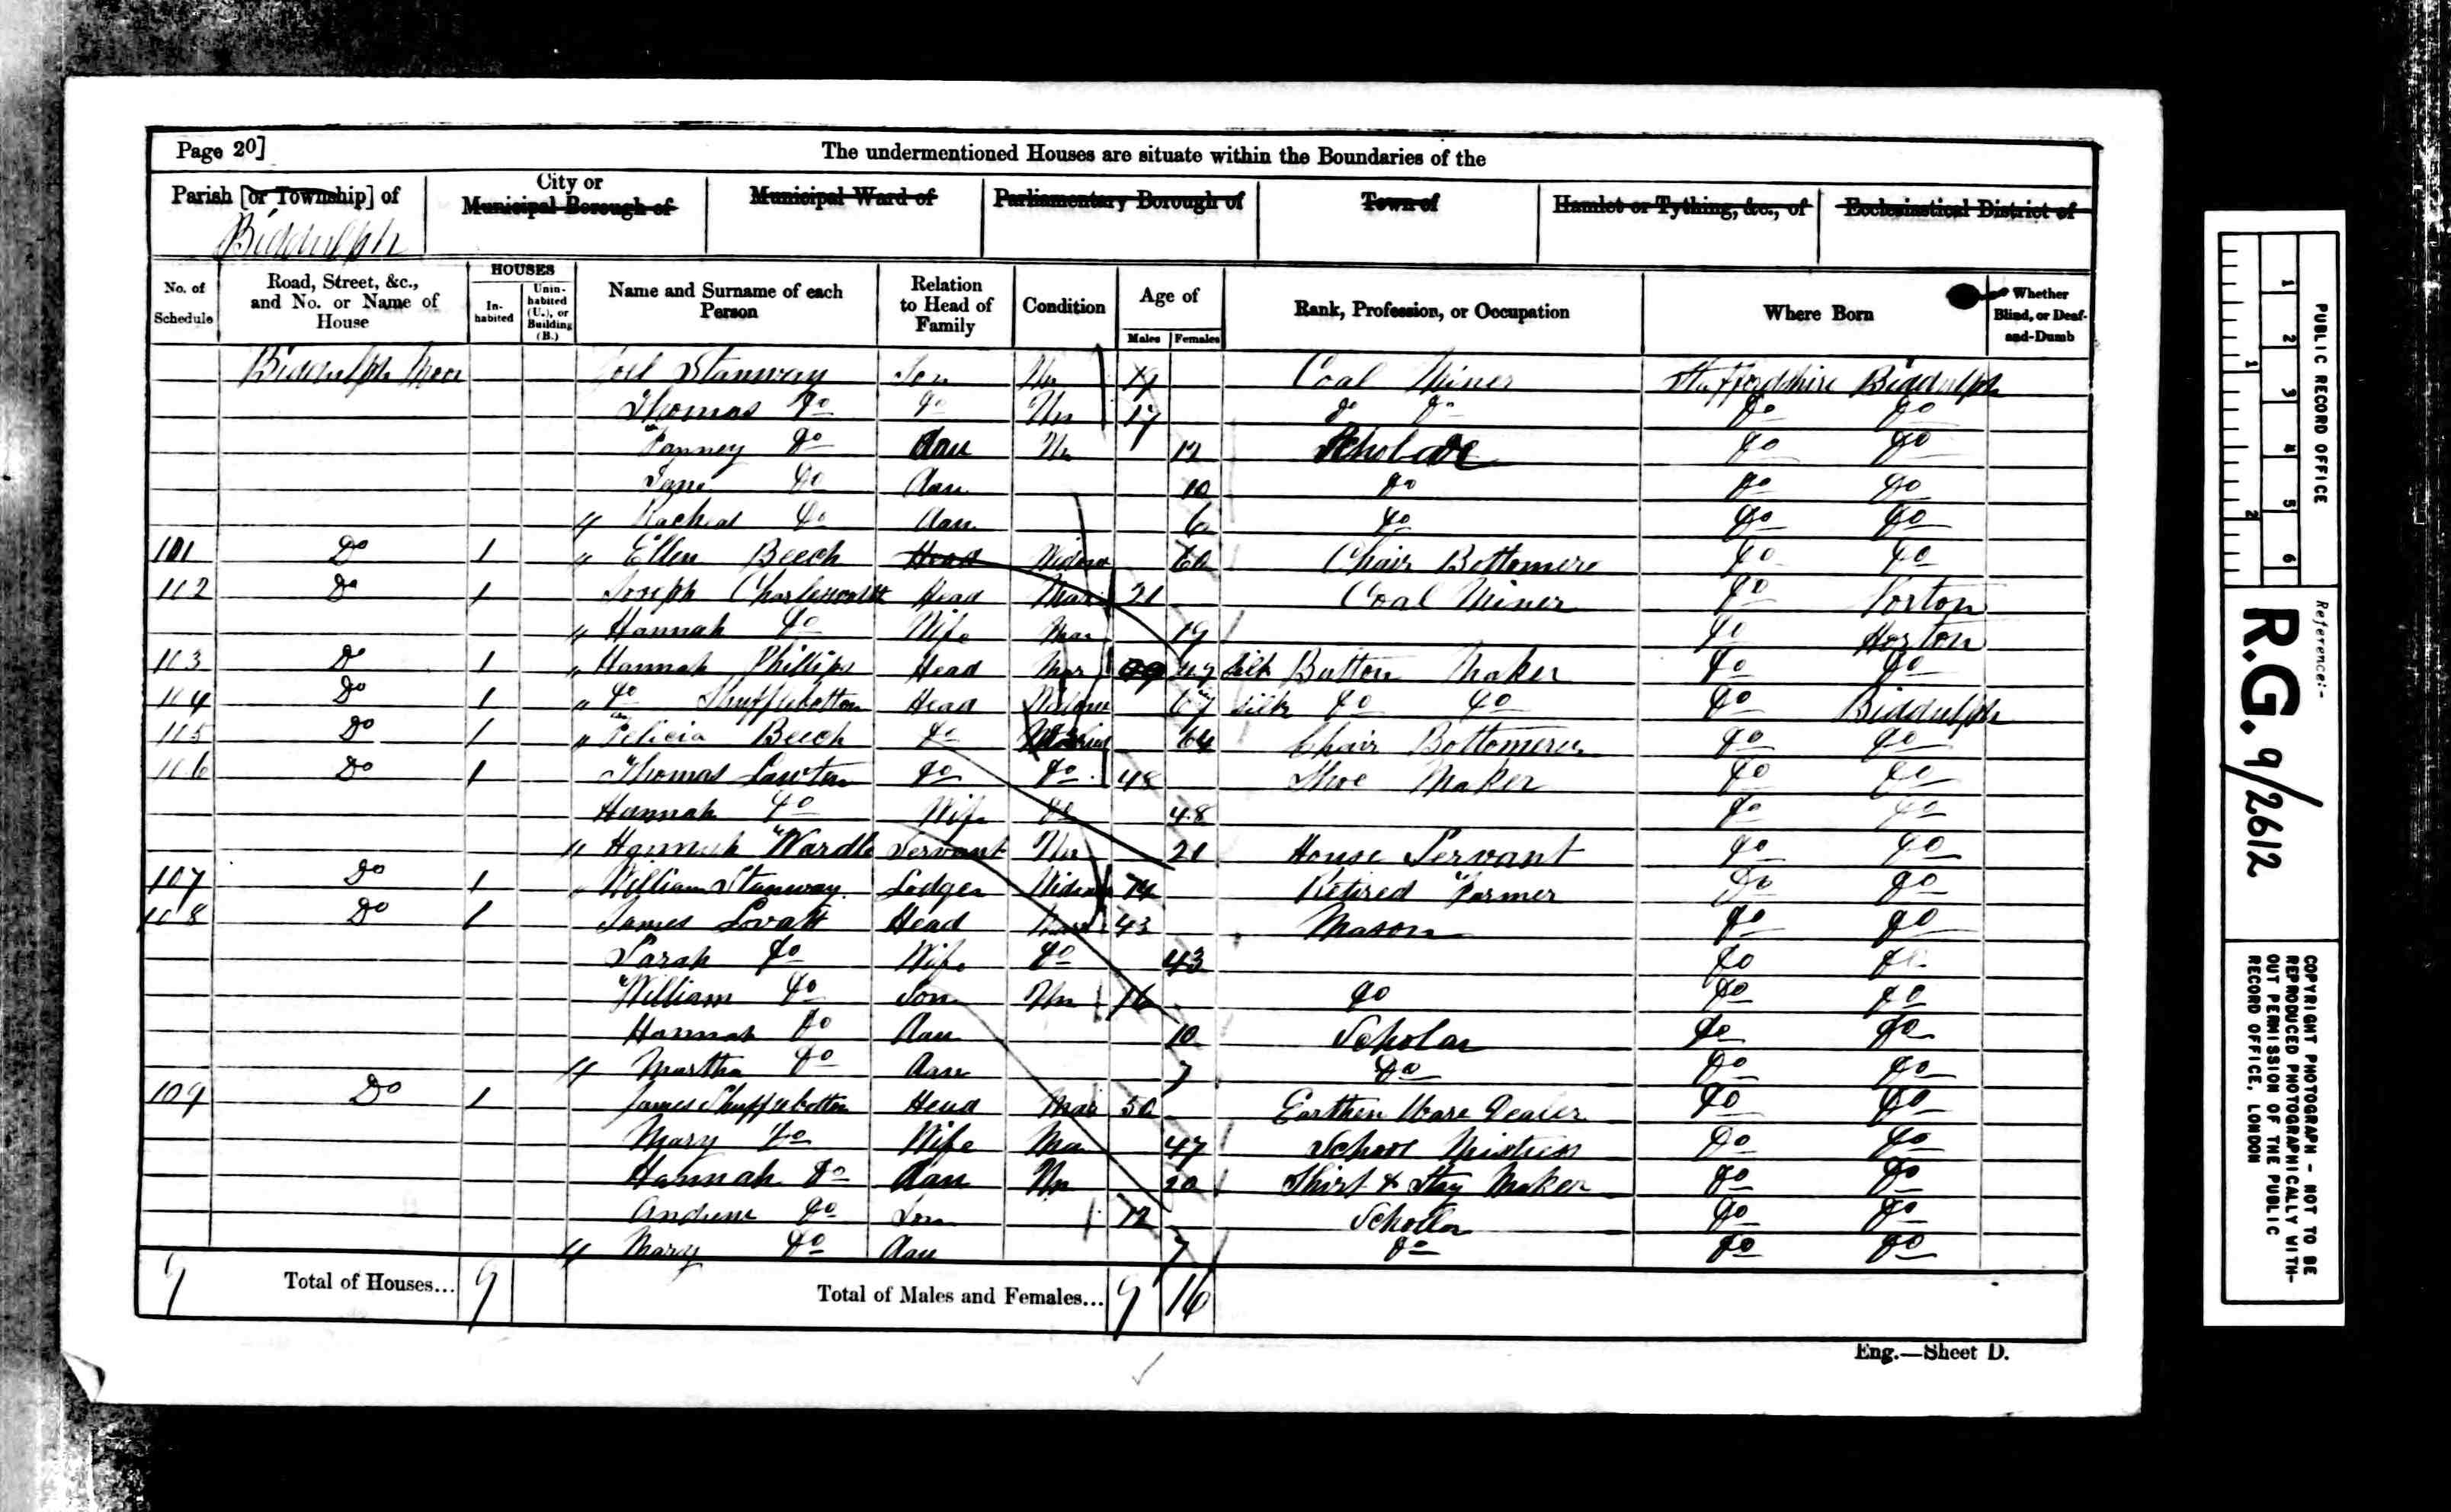 Page 20]
The undermentioned Houses are situate within the Boundaries of the
Parish [or Township] of Biddulph
City or Municipal Borough of
Municipal Ward of
Parliamentary Borough of
Town of
Hamlet or Tything, &c., of
Ecclesiastical District of
No. of Schedule
Road, Street, &c., and No. or Name of House
HOUSES
In-habited
Unin-habited (U.), or Building (B.)
Name and Surname of each Person
Relation to Head of Family
Condition
Age of
Males
Females
Rank, Profession, or Occupation
Where Born
Whether Blind, or Deaf-and-Dumb
Biddulph Moor Joel Stanway Son Un 19 Coal Miner Staffordshire Biddulph
Thomas Do Do Un 17 Do Do Do Do
Fanney Do Dau Un 12 Scholar Do Do
Jane Do Dau 10 Do Do Do
Racheal Do Dau 6 Do Do Do
101 Do 1 Ellen Beech Head Widow 60 Chair Bottomer Do Do
102 Do 1 Joseph Charlesworth Head Mar 21 Coal Miner Do Norton
Hannah Do Wife Mar 19 Do Horton
103 Do 1 Hannah Phillips Head Mar 47 Silk Button Maker Do Do
104 Do 1 Do Shufflebotton Head Widow 67 Silk Do Do Do Biddulph
105 Do 1 Felicia Beech Do 64 Chair Bottomer Do Do
106 Do 1 Thomas Lawton Do Do 48 Shoe Maker Do Do
Hannah Do Wife Do 48 Do Do
Hannah Wardle Servant Un 21 House Servant Do Do
107 Do 1 William Stanway Lodger Widow 74 Retired Farmer Do Do
108 Do 1 James Lovatt Head Mar 43 Mason Do Do
Sarah Do Wife Do 43 Do Do
William Do Son Un 16 Do Do Do
Hannah Do Dau 10 Scholar Do Do
Martha Do Dau 7 Do Do Do
109 Do 1 James Shufflebotton Head Mar 50 Earthen Ware Dealer Do Do
Mary Do Wife Mar 47 School Mistress Do Do
Hannah Do Dau Un 20 Shirt & Stay Maker Do Do
Andrew Do Son 12 Schollar Do Do
Mary Do Dau 7 Do Do Do
9 Total of Houses... 9 Total of Males and Females... 9 16
Eng.—Sheet D.
PUBLIC RECORD OFFICE
1 2 3 4 5 6
1 2
Reference:-
R.G. 9/2612
COPYRIGHT PHOTOGRAPH - NOT TO BE
REPRODUCED PHOTOGRAPHICALLY WITH-
OUT PERMISSION OF THE PUBLIC
RECORD OFFICE, LONDON